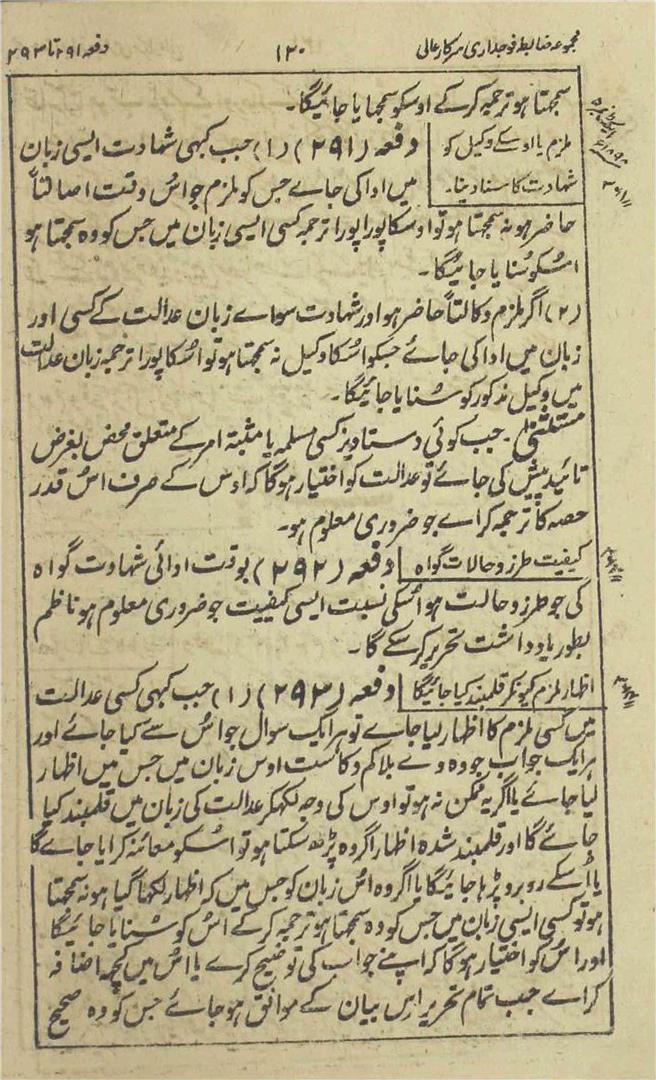 مجموعہ ضابطہ فوجداری سرکار عالی ۱۲۰ دفعہ ۲۹۱ تا ۲۹۳
سمجھتا ہو ترجمہ کر کے اوسکو سمجھایا جائیگا۔
ملزم یا اوسکے وکیل کو
شہادت کا سنا دینا۔
دفعہ (۲۹۱) (۱) جب کبھی شہادت ایسی زبان
میں ادا کی جاے جس کو ملزم جو اُس وقت اصالتاً
حاضر ہو نہ سمجھتا ہو تو اوسکا پورا پورا ترجمہ کسی ایسی زبان میں جس کو وہ سمجھتا ہو
اسکو سُنایا جائیگا۔
(۲) اگر ملزم وکالتاً حاضر ہو اور شہادت سواے زبان عدالت کے کسی اور
زبان میں ادا کی جائے جسکو اسکا وکیل نہ سمجھتا ہو تو اُسکا پورا ترجمہ زبان عدالت
میں وکیل مذکور کو سُنایا جائیگا۔
مستثنیٰ۔ جب کوئی دستاویز کسی مسلمہ یا مثبتہ امر کے متعلق محض بغرض
تائید پیش کی جائے تو عدالت کو اختیار ہو گا کہ اوس کے صرف اسُ قدر
حصہ کا ترجمہ کراے جو ضروری معلوم ہو۔
کیفیت طرز و حالات گواہ
دفعہ (۲۹۲) بوقت ادائی شہادت گواہ
کی جو طرز و حالت ہو اسُکی نسبت ایسی کیفیت جو ضروری معلوم ہو ناظم
بطور یادداشت تحریر کر سکے گا۔
اظہار ملزم کیونکر قلمبند کیا جائیگا
دفعہ (۲۹۳) (۱) جب کبھی کسی عدالت
میں کسی ملزم کا اظہار لیا جاے تو ہر ایک سوال جو اسُ سے کیا جائے اور
ہر ایک جواب جو وہ دے بلا کم و کاست اوس زبان میں جس میں اظہار
لیا جائے یا اگر یہ ممکن نہ ہو تو اوس کی وجہ لکھکر عدالت کی زبان میں قلمبند کیا
جائے گا اور قلمبند شدہ اظہار اگر وہ پڑھ سکتا ہو تو اسُکو معائنہ کرایا جاے گا
یا اُسکے روبرو پڑھا جائیگا یا اگر وہ اسُ زبان کو جس میں کہ اظہار لکھا گیا ہو نہ سمجھتا
ہو تو کسی ایسی زبان میں جس کو وہ سمجھتا ہو ترجمہ کر کے اسُ کو سُنایا جائیگا
اور اسُ کو اختیار ہو گا کہ اپنے جواب کی توضیح کرے یا اسُ میں کچھ اضافہ
کراے جب تمام تحریر اس بیان کے موافق ہو جائے جس کو وہ صحیح